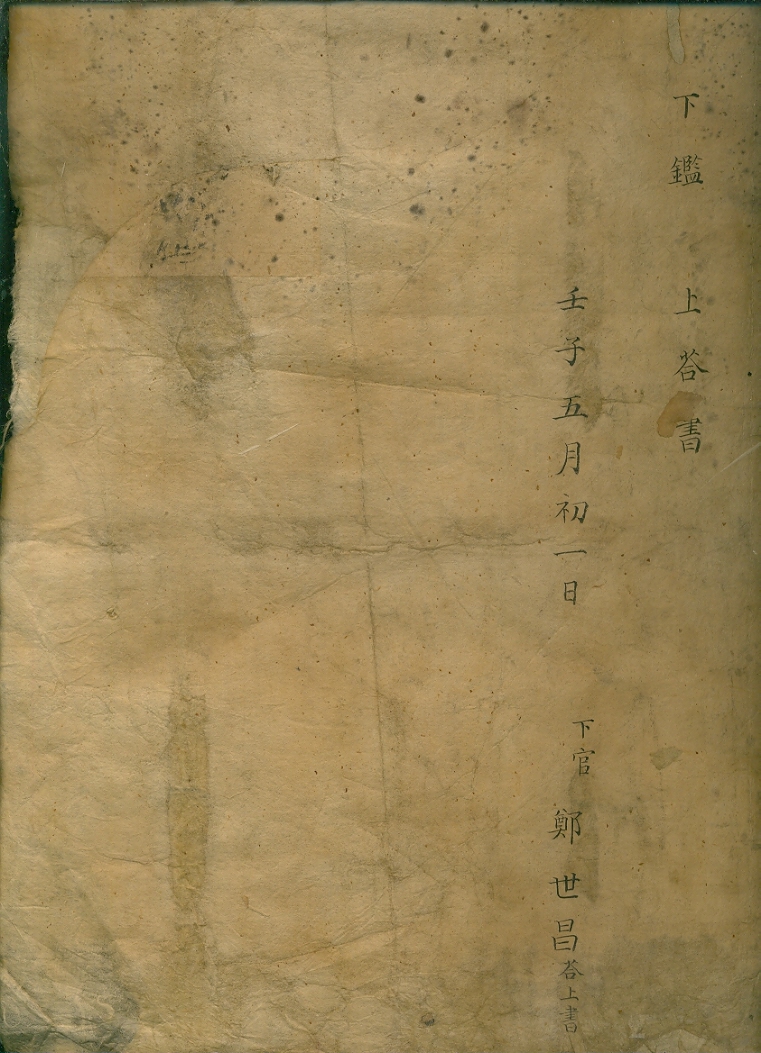 下鑑 上荅書
壬子五月初一日
下官 鄭世昌荅上書